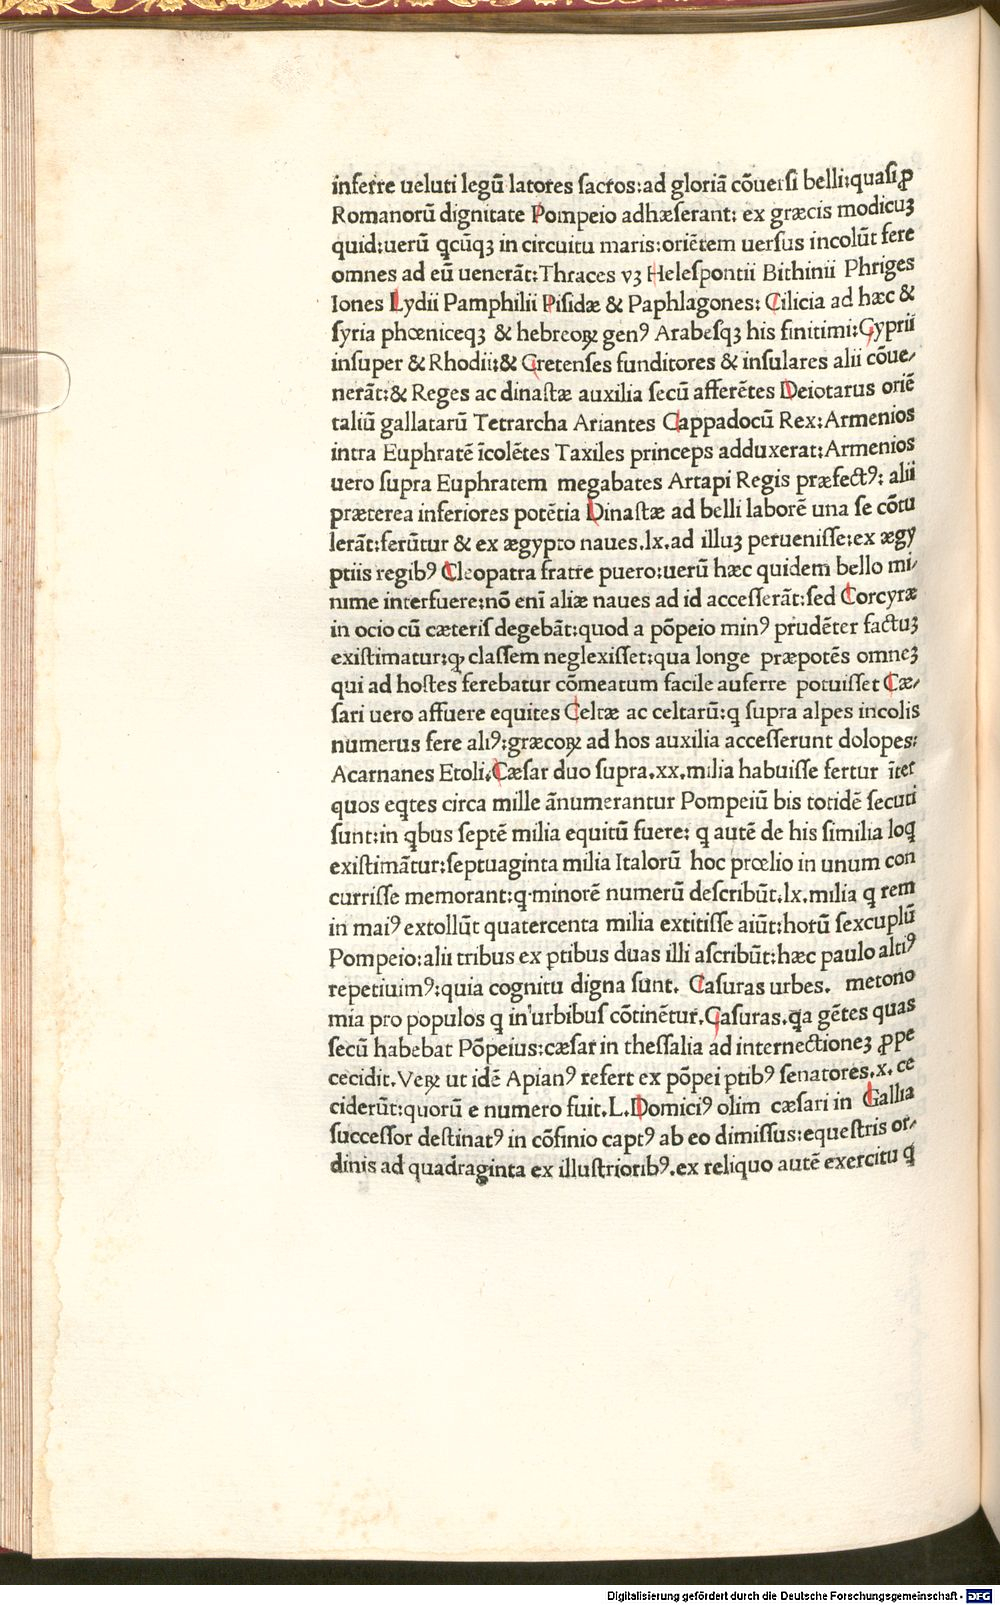 inferre ueluti legū latores sacros:ad gloriā cōuersi belli:quasi ꝓ
Romanorū dignitate Pompeio adhæserant: ex græcis modicuꝫ
quid:uerū qcūqꝫ in circuitu maris:oriētem uersus incolūt fere
omnes ad eū uenerāt:Thraces vꝫ Helespontii Bithinii Phriges
Iones Lydii Pamphilii Pisidæ & Paphlagones: Cilicia ad hæc &
syria phœniceqꝫ & hebreoꝝ genꝰ Arabesqꝫ his finitimi:Cyprii
insuper & Rhodii:& Cretenses funditores & insulares alii cōue/
nerāt:& Reges ac dinastæ auxilia secū afferētes Deiotarus oriē
taliū gallatarū Tetrarcha Ariantes Cappadocū Rex:Armenios
intra Euphratē īcolētes Taxiles princeps adduxerat:Armenios
uero supra Euphratem megabates Artapi Regis præfectꝰ: alii
præterea inferiores potētia Dinastæ ad belli laborē una se cōtu
lerāt:ferūtur & ex ægypto naues.lx.ad illuꝫ peruenisse:ex ægy
ptiis regibꝰ Cleopatra fratre puero:uerū hæc quidem bello mi/
nime interfuere:nō enī aliæ naues ad id accesserāt:sed Corcyræ
in ocio cū cæteris degebāt:quod a pōpeio minꝰ prudēter factuꝫ
existimatur:ꝙ classem neglexisset:qua longe præpotēs omneꝫ
qui ad hostes ferebatur cōmeatum facile auferre potuisset Cæ/
sari uero affuere equites Celtæ ac celtarū:q supra alpes incolis
numerus fere aliꝰ:græcoꝝ ad hos auxilia accesserunt dolopes:
Acarnanes Etoli.Cæsar duo supra.xx.milia habuisse fertur īter
quos eqtes circa mille ānumerantur Pompeiū bis totidē secuti
sunt:in qbus septē milia equitū fuere: q autē de his similia loq
existimātur:septuaginta milia Italorū hoc prœlio in unum con
currisse memorant:q minorē numerū describūt.lx.milia q rem
in maiꝰ extollūt quatercenta milia extitisse aiūt:horū sexcuplū
Pompeio:alii tribus ex ꝑtibus duas illi ascribūt:hæc paulo altiꝰ
repetiuimꝰ:quia cognitu digna sunt. Casuras urbes. metono
mia pro populos q in urbibus cōtinētur.Casuras.qa gētes quas
secū habebat Pōpeius:cæsar in thessalia ad internectioneꝫ ꝓpe
cecidit.Veꝝ ut idē Apianꝰ refert ex pōpei ꝑtibꝰ senatores.x.ce
ciderūt:quorū e numero fuit.L.Domiciꝰ olim cæsari in Gallia
successor destinatꝰ in cōfinio captꝰ ab eo dimissus:equestris or/
dinis ad quadraginta ex illustrioribꝰ.ex reliquo autē exercitu q
Digitalisierung gefördert durch die Deutsche Forschungsgemeinschaft - DFG